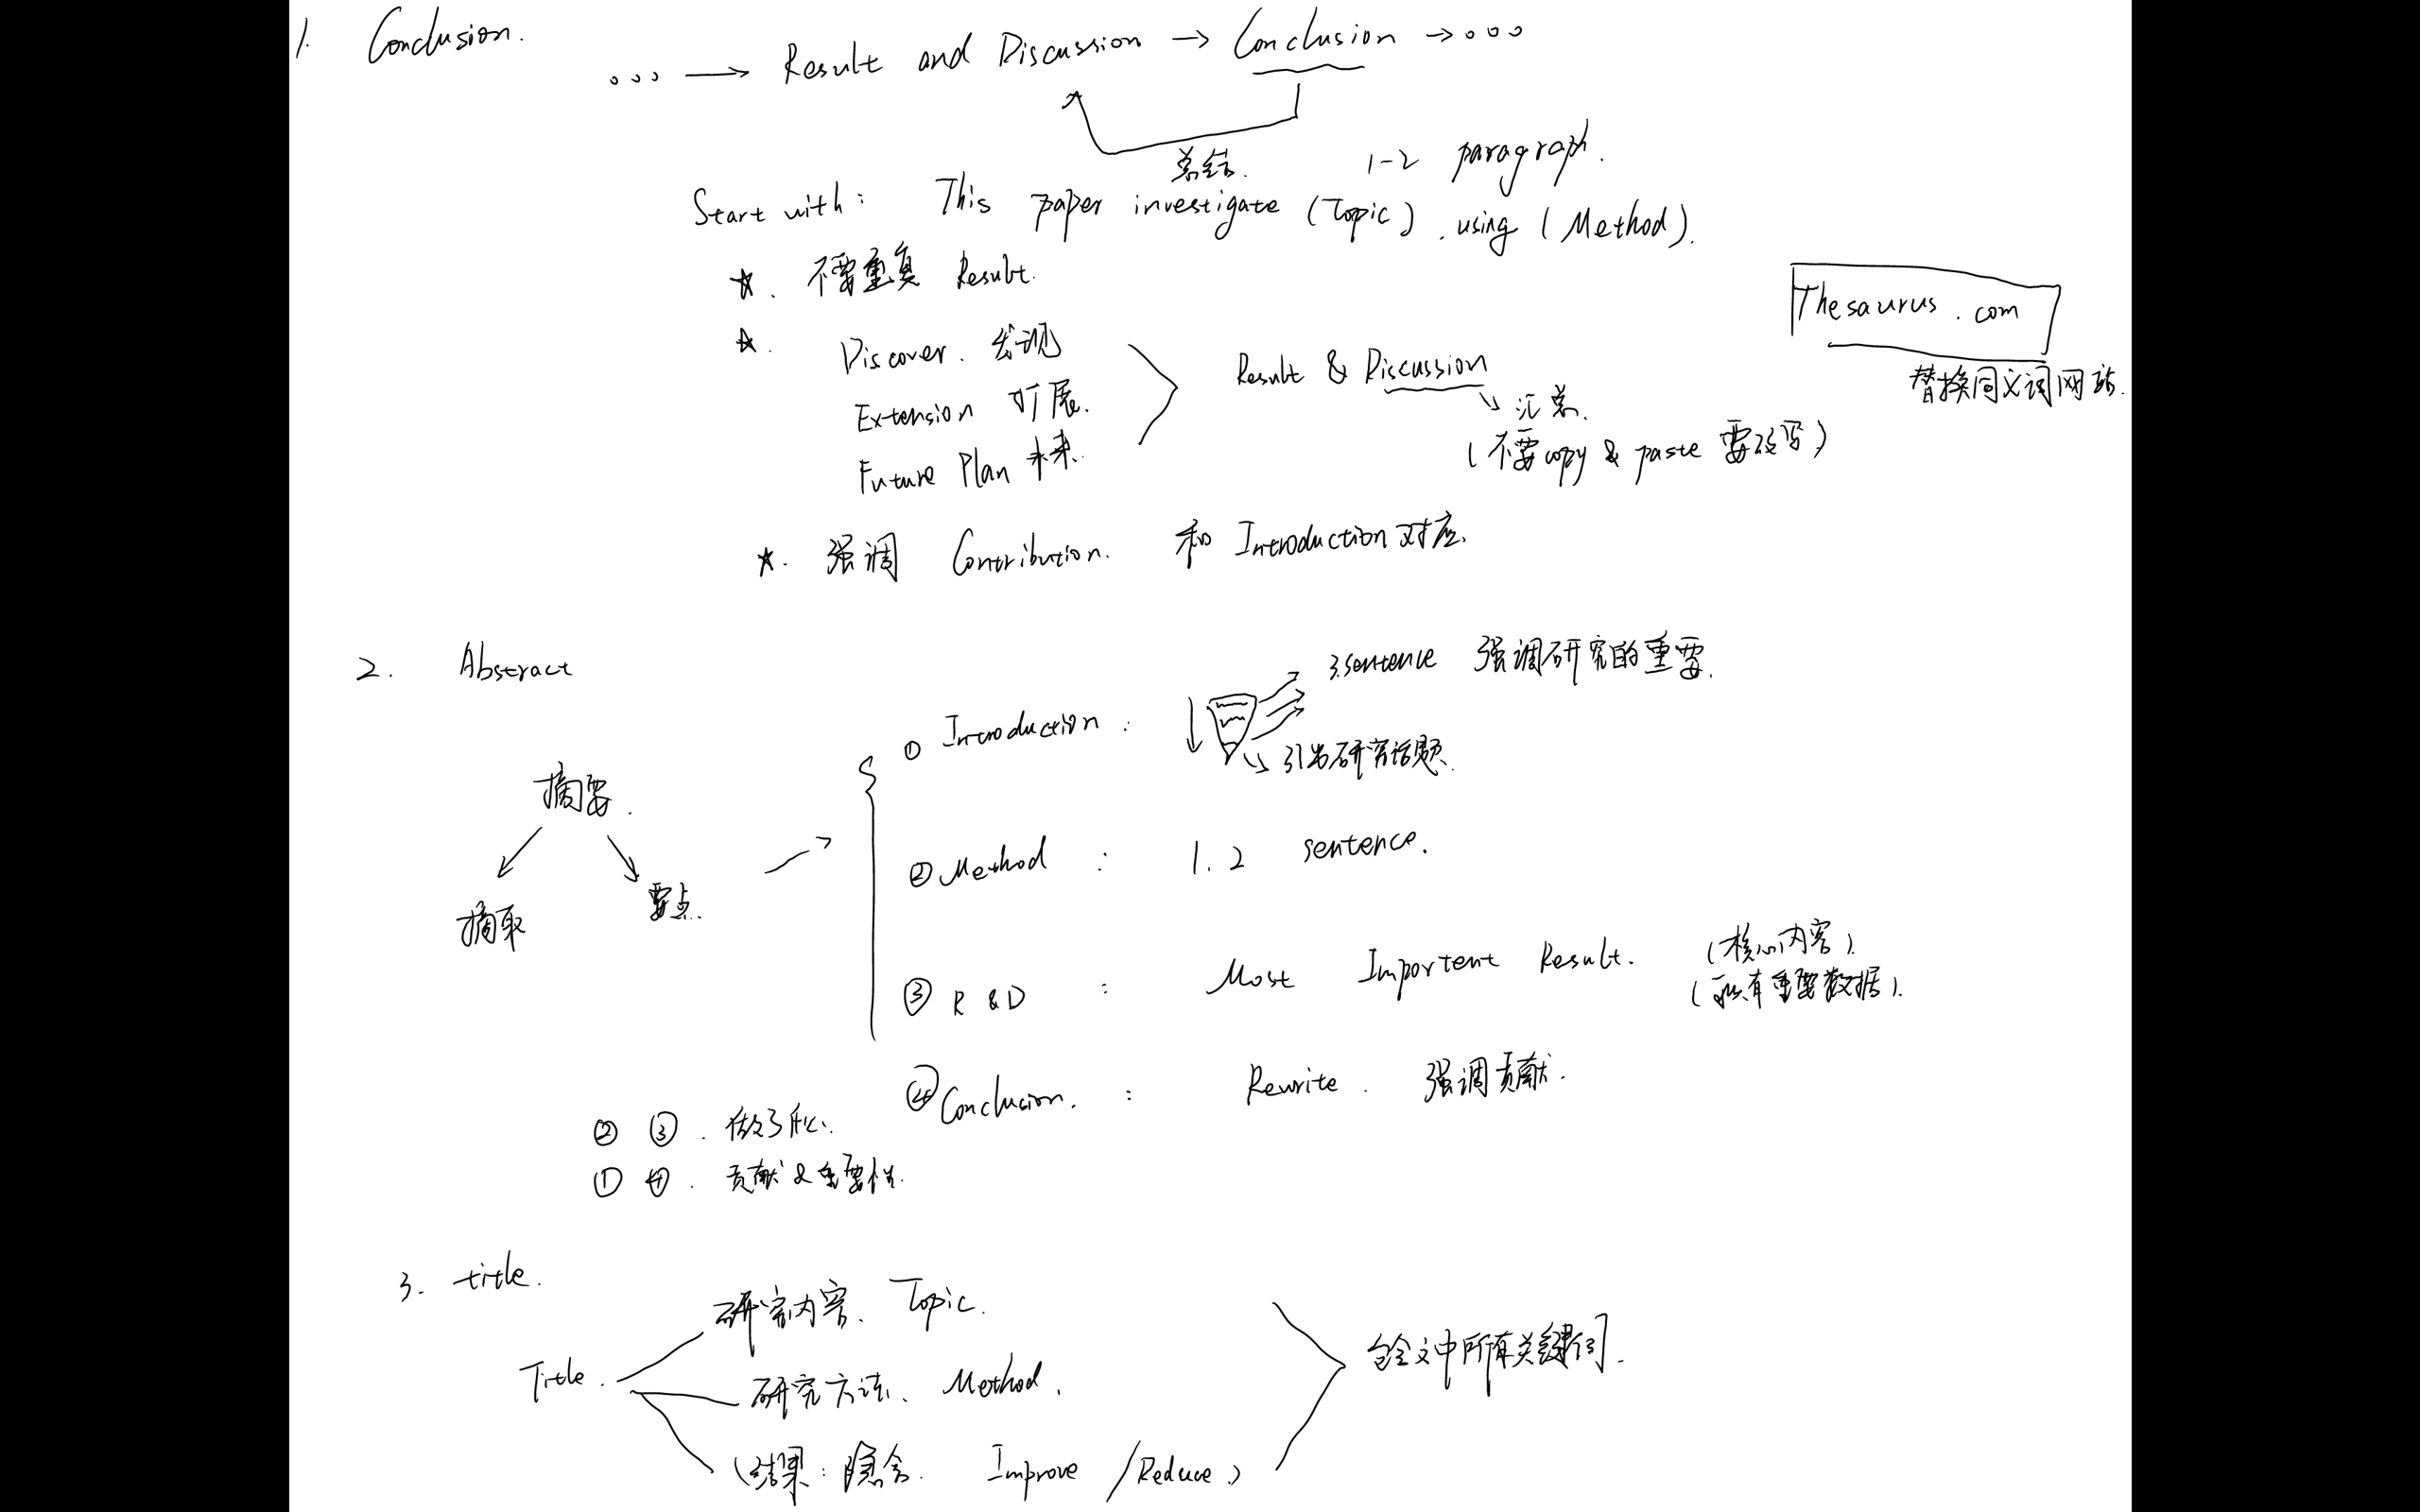 1. Conclusion.
○○○ → Result and Discussion → Conclusion → ○○○
总结. 1-2 paragraph.
Start with: This paper investigate (Topic). using (Method).
☆. 不要重复 Result.
☆. Discover. 发现
Extension 扩展.
Future Plan 未来.
Result & Discussion
↘ 汇总.
(不要copy & paste 要改写)
Thesaurus.com
替换同义词网站.
☆. 强调 Contribution. 和 Introduction 对应.
2. Abstract
摘要.
摘取 要点.
① Introduction:
3.sentence 强调研究的重要.
引出研究话题.
② Method: 1.2 sentence.
③ R&D: Most Importent Result. (核心内容).
(所有重要数据).
④ Conclusion.: Rewrite. 强调贡献.
② ③. 做了什么.
① ④. 贡献&重要性.
3. title.
Title.
研究内容. Topic.
研究方法、Method.
(结果: 隐含. Improve / Reduce.)
包含文中所有关键词.